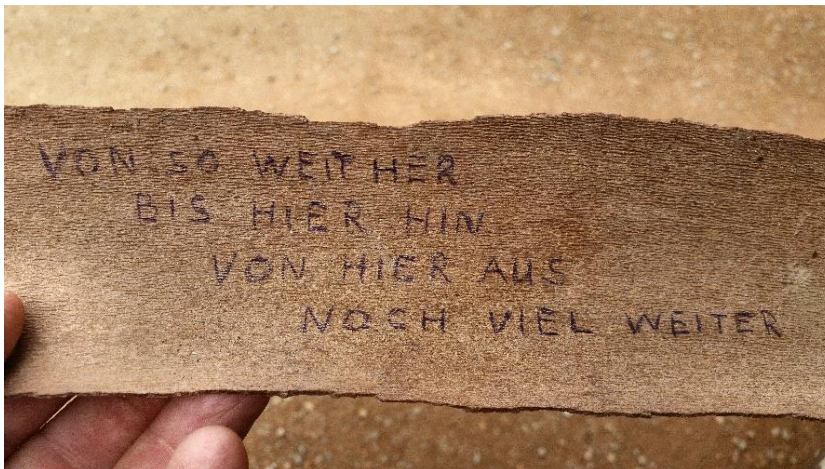 VON SO WEIT HER
BIS HIER HIN
VON HIER AUS
NOCH VIEL WEITER